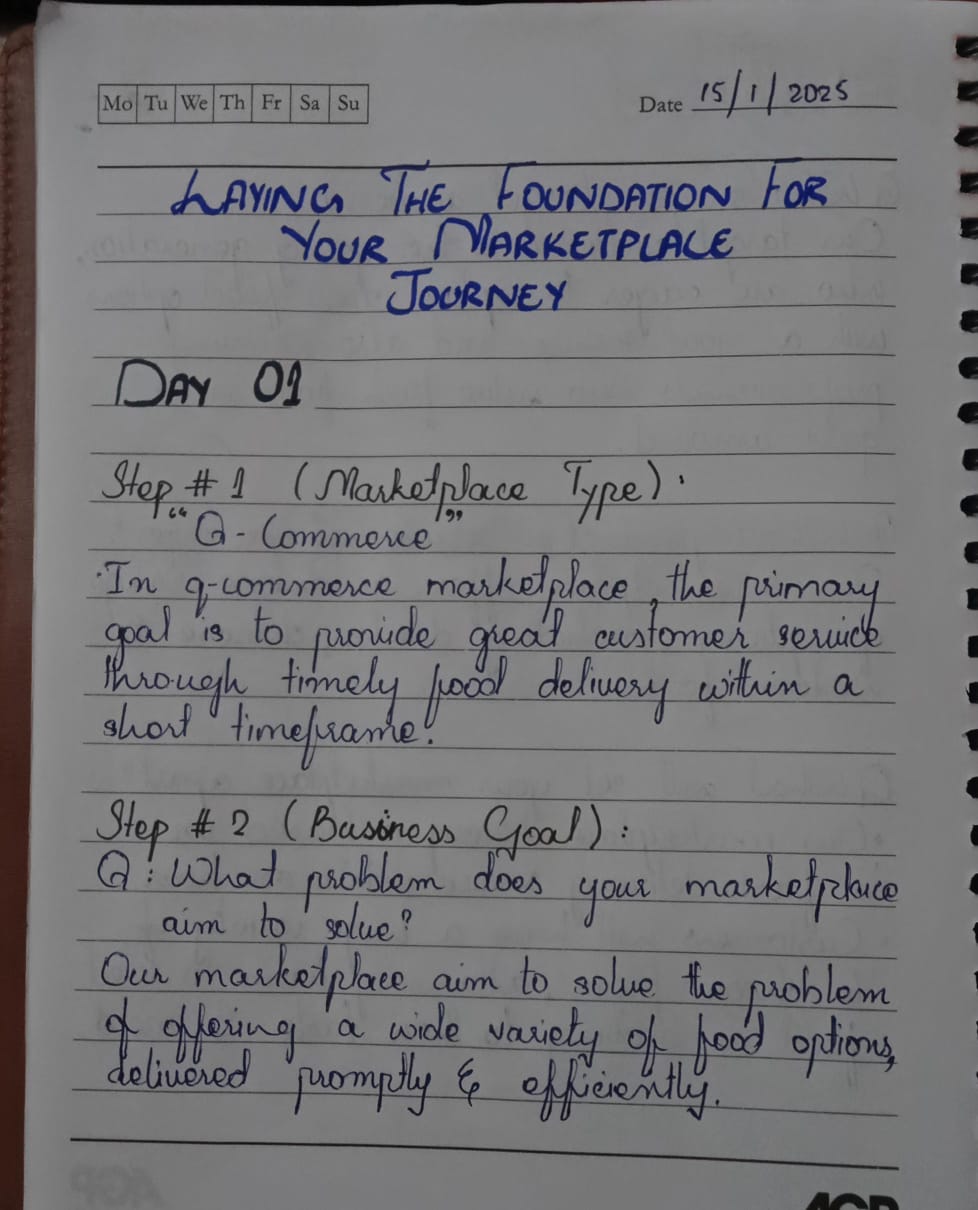 Mo Tu We Th Fr Sa Su
Date 15/1/2025
LAYING THE FOUNDATION FOR
YOUR MARKETPLACE
JOURNEY
DAY 01
Step # 1 (Marketplace Type):
“Q-Commerce”
·In q-commerce marketplace, the primary
goal is to provide great customer service
through timely food delivery within a
short timeframe.
Step # 2 (Business Goal):
Q: What problem does your marketplace
aim to solve?
Our marketplace aim to solve the problem
of offering a wide variety of food options,
delivered promptly & efficiently.
AGP